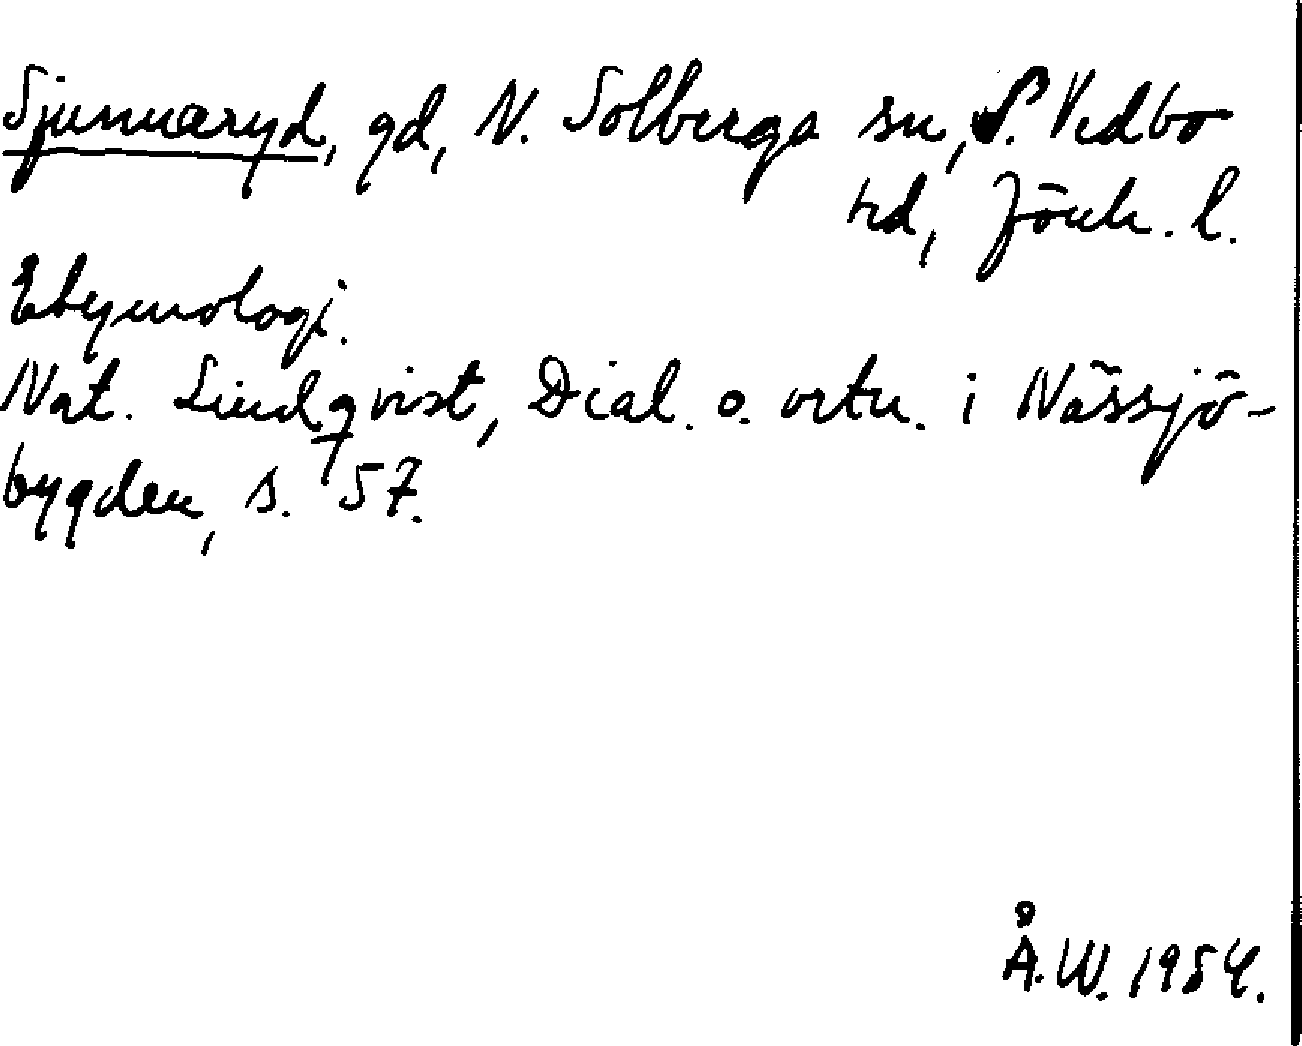 Sjunnaryd, gd, N. Solberga sn, S. Vedbo
hd, Jönk. l.
Etymologi.
Nat. Lindqvist, Dial. o. ortn. i Nässjö-
bygden, s. 57.
Å.W. 1954.